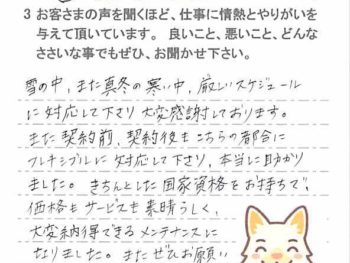 3 お客さまの声を聞くほど、仕事に情熱とやりがいを
与えて頂いています。 良いこと、悪いこと、どんな
ささいな事でもぜひ、お聞かせ下さい。
雪の中、また真冬の寒い中、厳しいスケジュール
に対応して下さり大変感謝しております。
また契約前、契約後もこちらの都合に
フレキシブルに対応して下さり、本当に助かり
ました。きちんとした国家資格をお持ちで、
価格もサービスも素晴らしく、
大変納得できるメンテナンスに
なりました。またぜひお願い